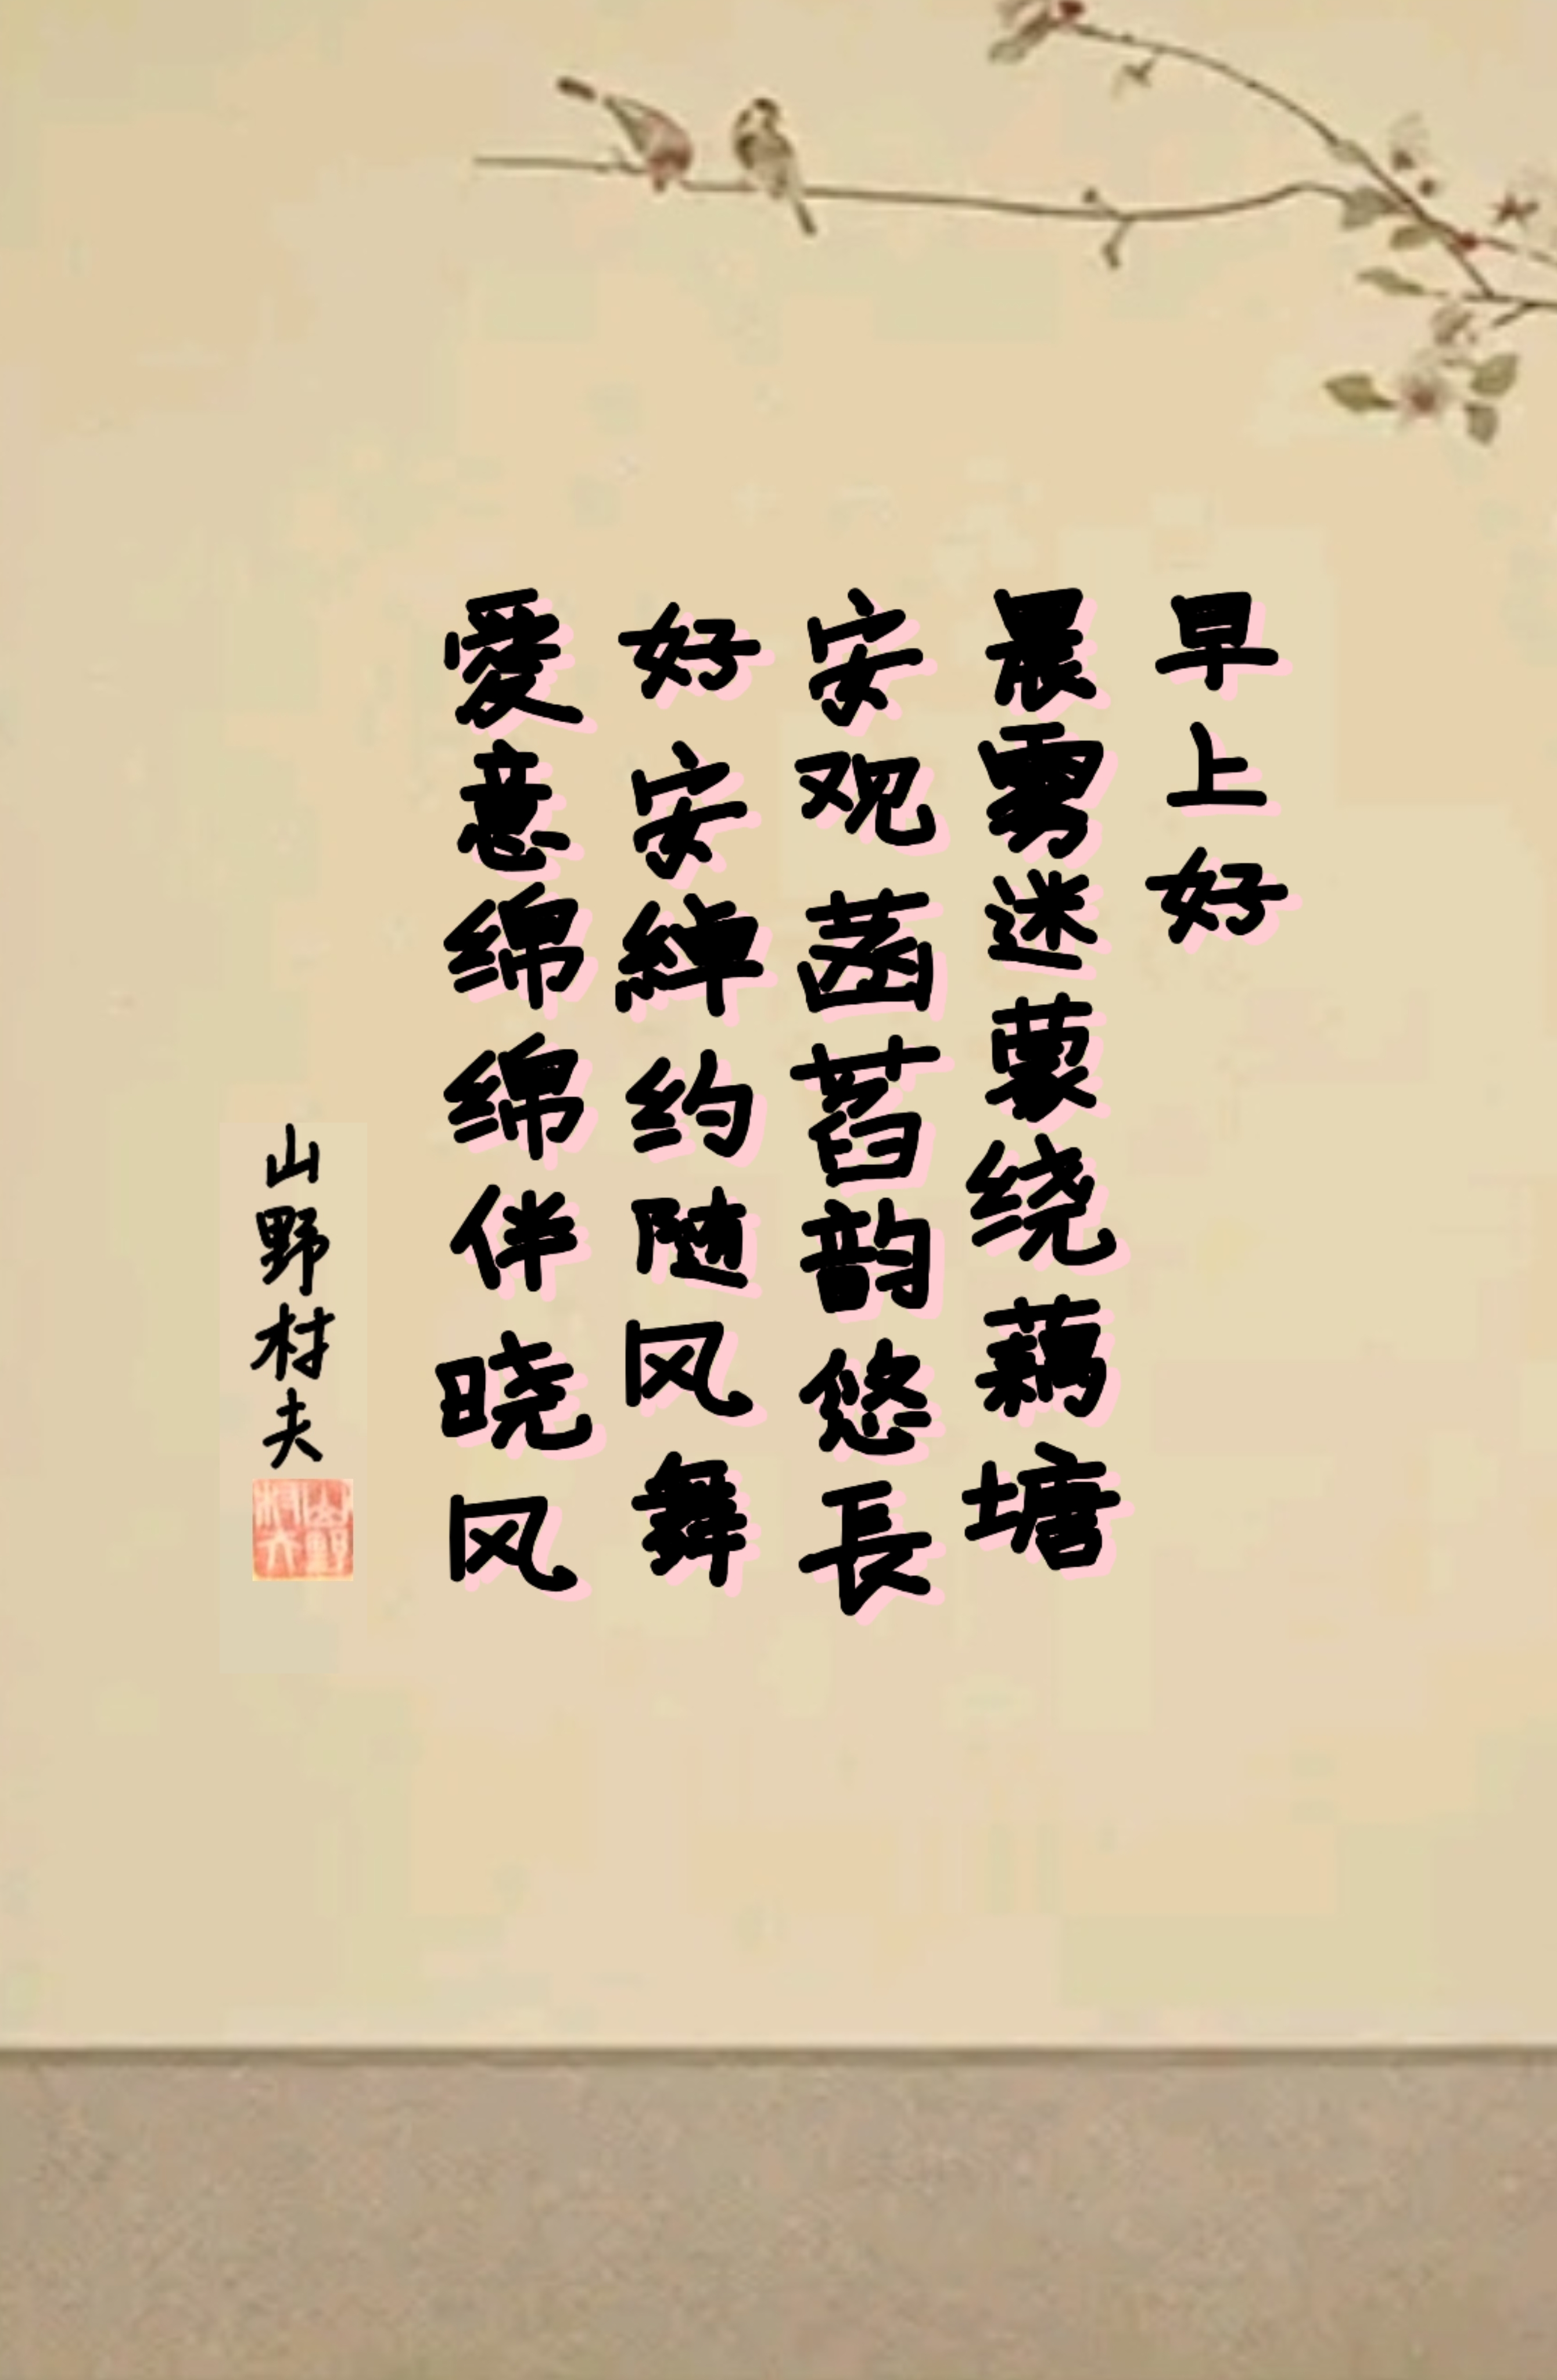 早上好
晨雾迷蒙绕藕塘
安观菡萏韵悠長
好安綽约随风舞
愛意绵绵伴晓风
山野村夫
山野村夫